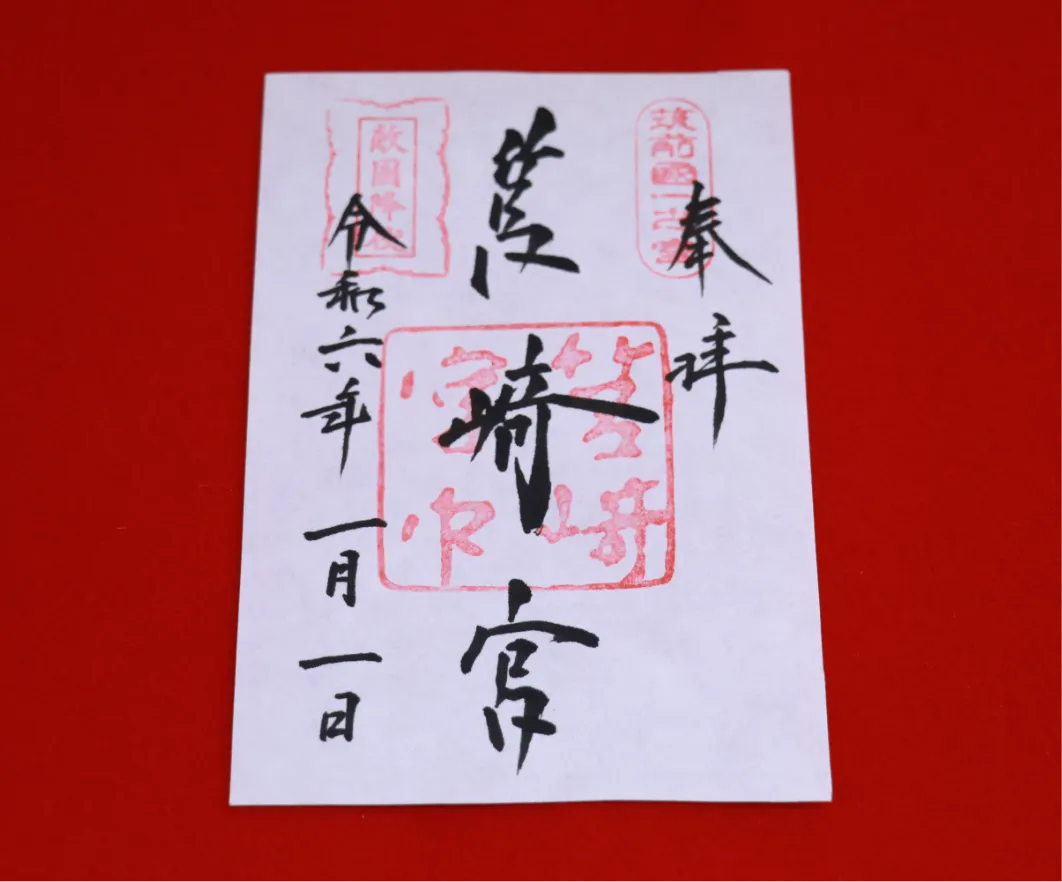 筑前國一之宮
奉拝
筥崎宮
筥崎
宮印
敵國降伏
令和六年一月一日